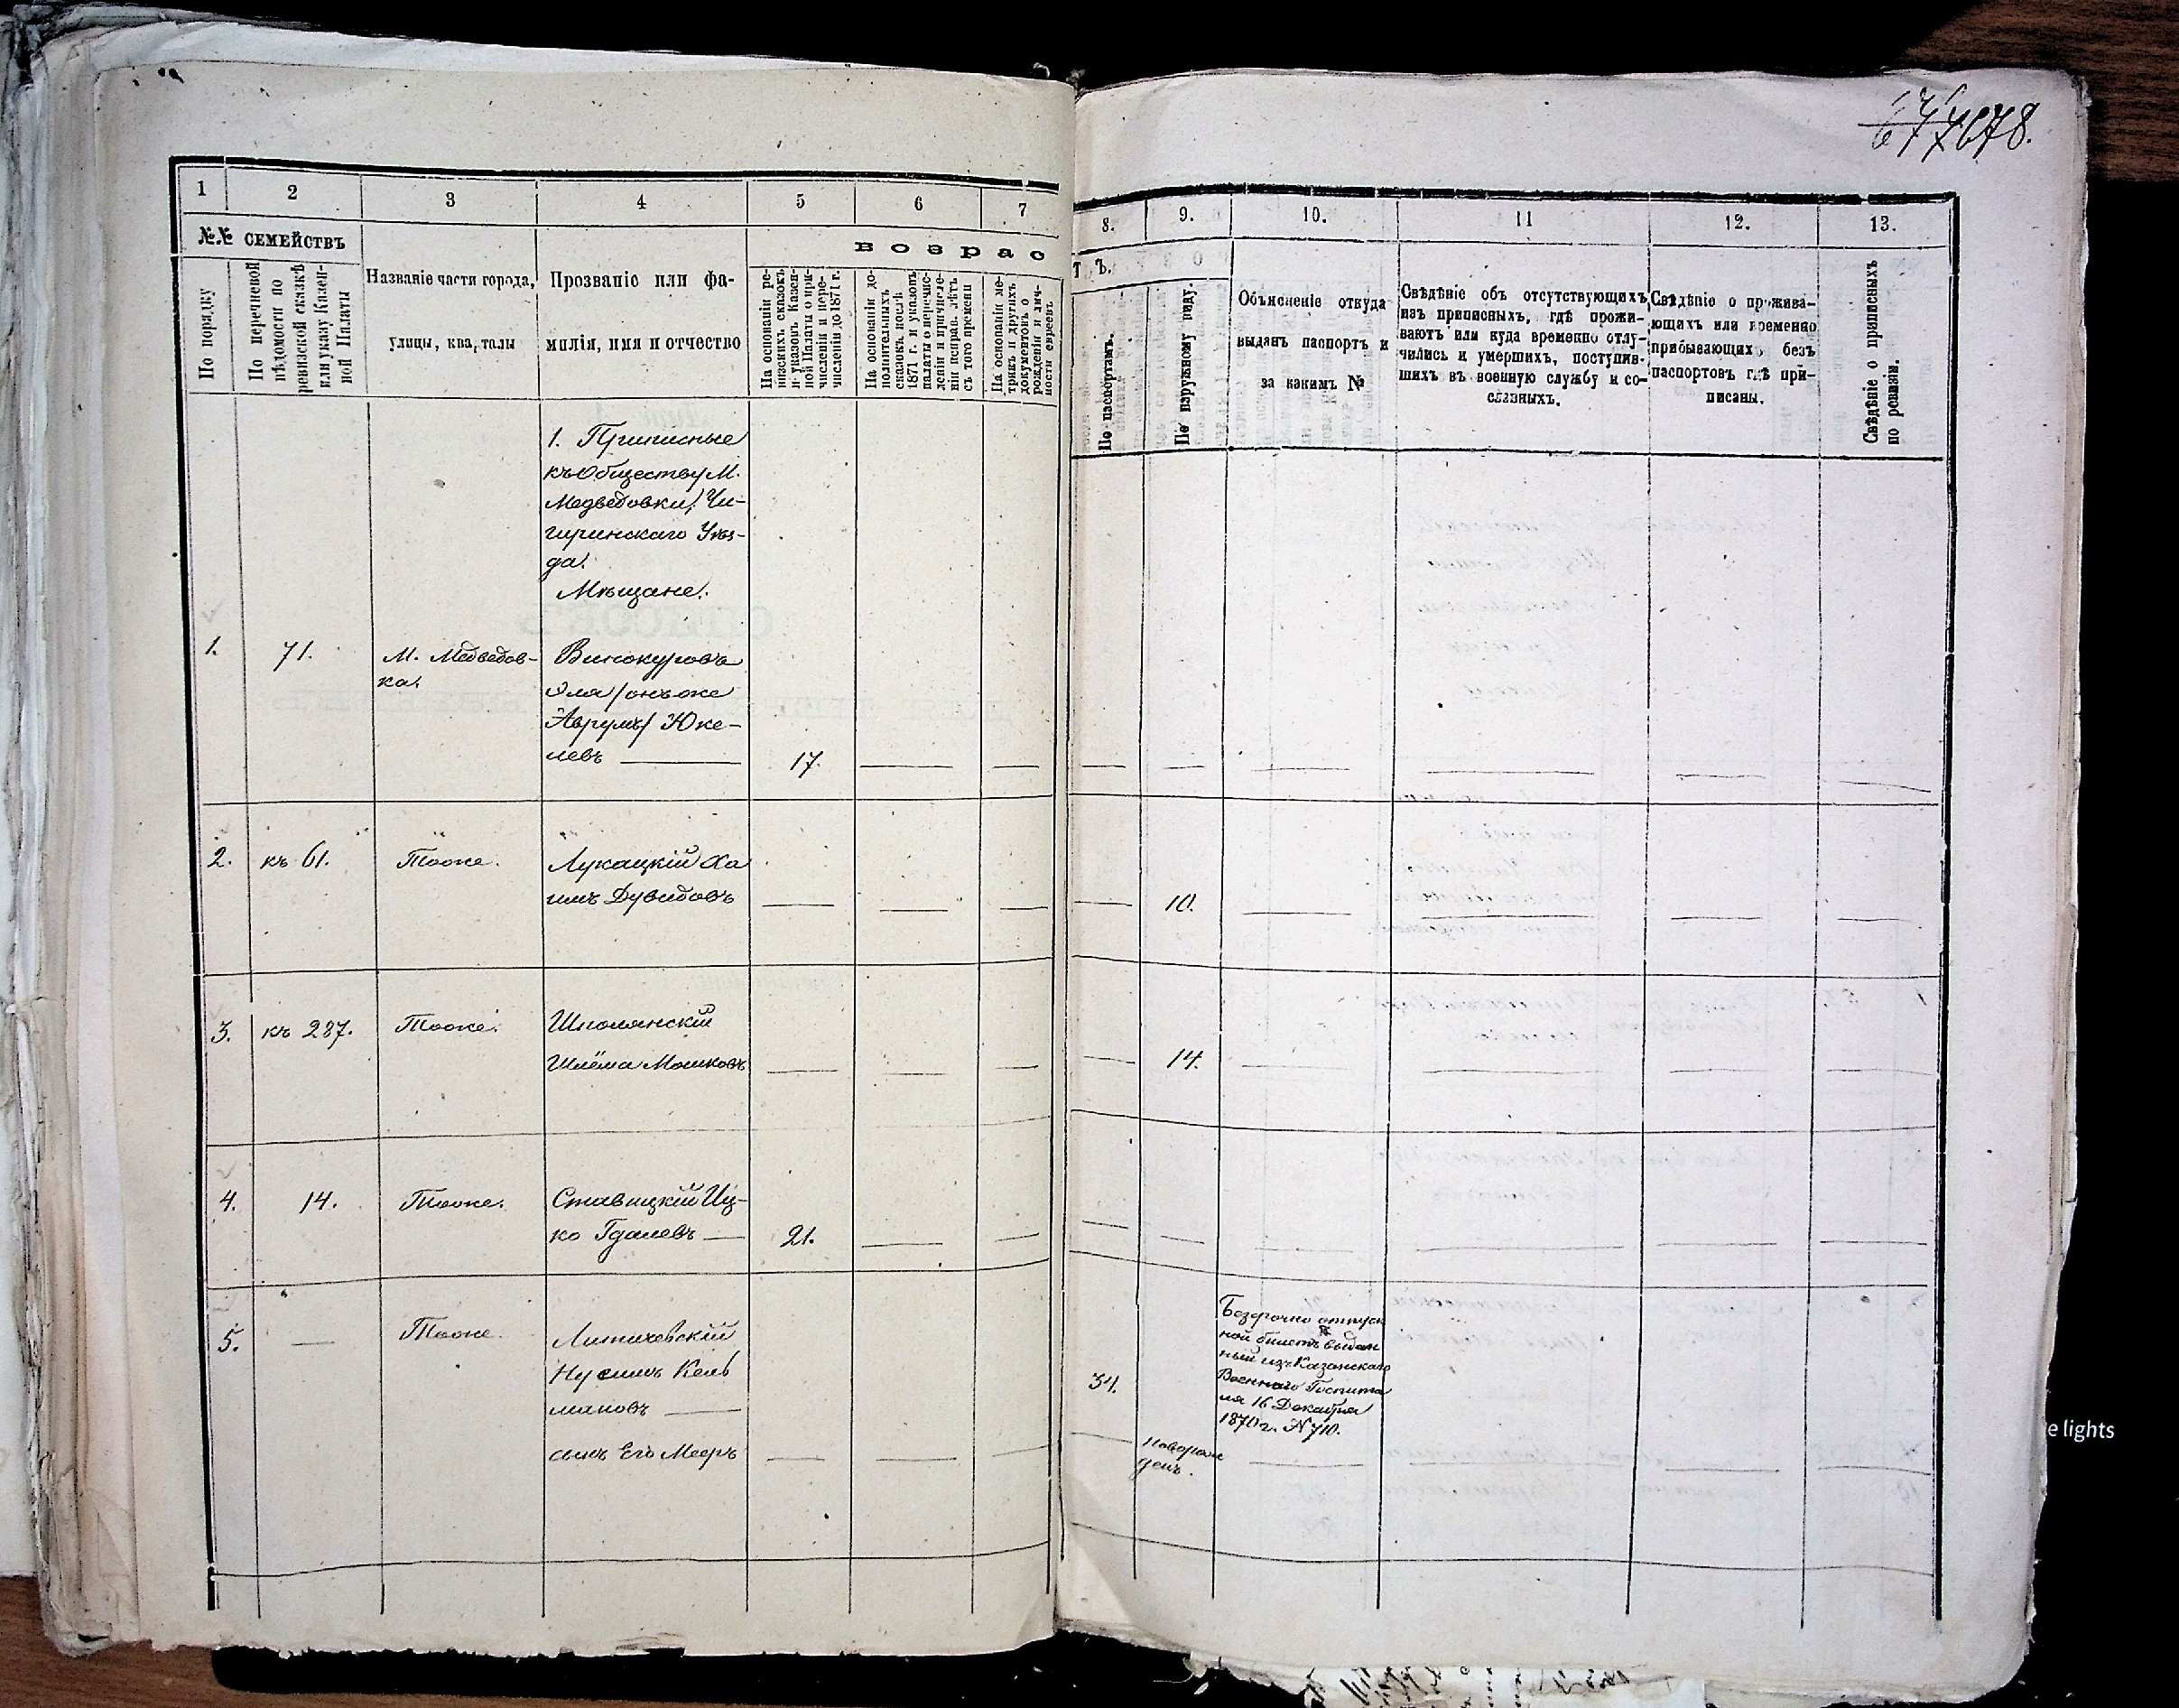 678.
1 2 3 4 5 6 7
8. 9. 10. 11 12. 13.
№.№ СЕМЕЙСТВЪ
По порядку
По перечневой
вѣдомости по
ревизской сказкѣ
или указу Казен-
ной Палаты
Названіе части города,
улицы, кварталы
Прозваніе или фа-
милія, имя и отчество
возрас
На основаніи ре-
визскихъ сказокъ
и указовъ Казен-
ной Палаты о при-
численіи и пере-
численіи до 1871 г.
На основаніи до-
полнительныхъ
сказокъ послѣ
1871 г. и указовъ
палаты о перечис-
леніи и причисле-
ніи исправ. лѣтъ
съ того времени
На основаніи ме-
трикъ и другихъ
документовъ о
рожденіи и лич-
ности евреевъ
тъ.
По паспортамъ.
По наружному виду.
Объясненіе откуда
выданъ паспортъ и
за какимъ №
Свѣдѣніе объ отсутствующихъ
изъ приписныхъ, гдѣ прожи-
ваютъ или куда временно отлу-
чились и умершихъ, поступив-
шихъ въ военную службу и со-
сланныхъ.
Свѣдѣніе о прожива-
ющихъ или временно
прибывающихъ безъ
паспортовъ гдѣ при-
писаны.
Свѣдѣніе о приписныхъ
по ревизіи.
1. Приписные
къ Обществу М.
Медведовки, Чи-
гиринскаго Уѣз-
да.
Мѣщане.
1. 71. М. Медведов- Винокуровъ
ка. Эля /онъ же
Аврумъ/ Юке-
левъ 17.
2. къ 61. Тоже. Лукацкій Ха
имъ Дувидовъ 10.
3. къ 287. Тоже. Шполянскій
Шлёма Мошковъ 14.
4. 14. Тоже. Ставицкій Иц-
ко Гдалевъ 21.
5. Тоже. Литичевскій
Нусимъ Кель
мановъ 34.
Безсрочно отпуск
ной билетъ выдан
ный изъ Казанскаго
Военнаго Госпита
ля 16 Декабря
1870 г. № 710.
сынъ Его Мееръ
новорож
денъ.
e lights